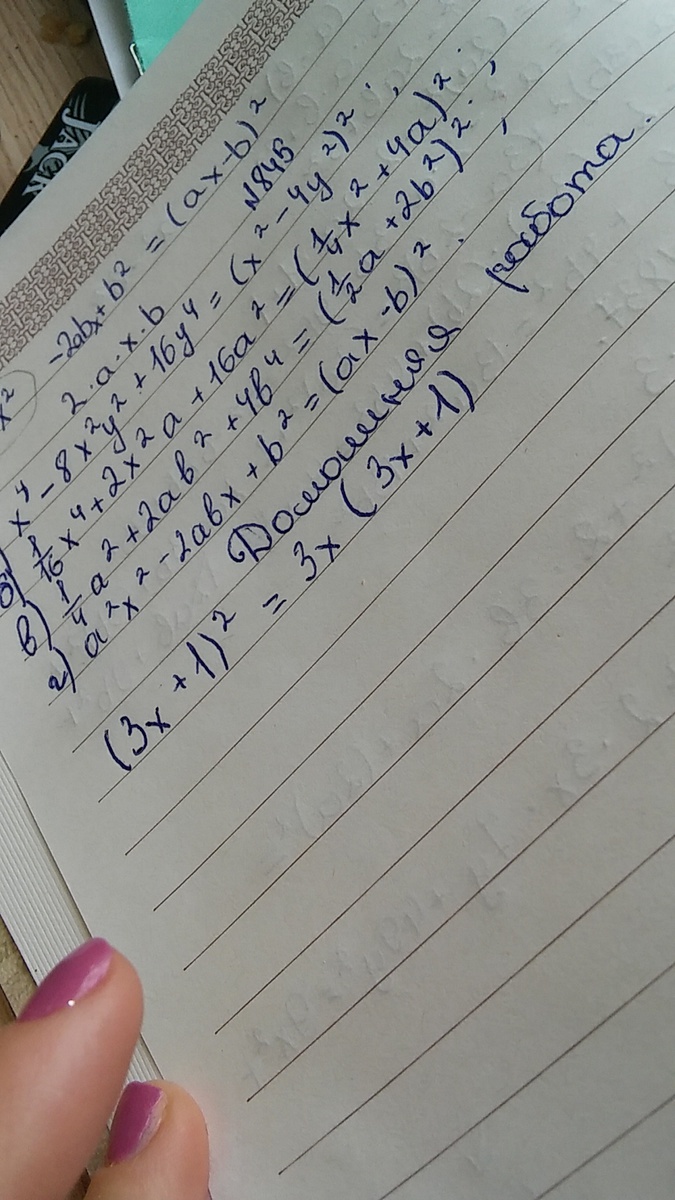 JACK
x² -2abx+b² = (ax-b)²
2·a·x·b
N848
x⁴-8x²y²+16y⁴ = (x²-4y²)²;
б) 1/16x⁴+2x²a+16a² = (1/4x²+4a)²;
в) 1/4a²+2ab²+4b⁴ = (1/2a+2b²)²;
г) a²x²-2abx+b² = (ax-b)².
Домашняя работа.
(3x+1)² = 3x(3x+1)